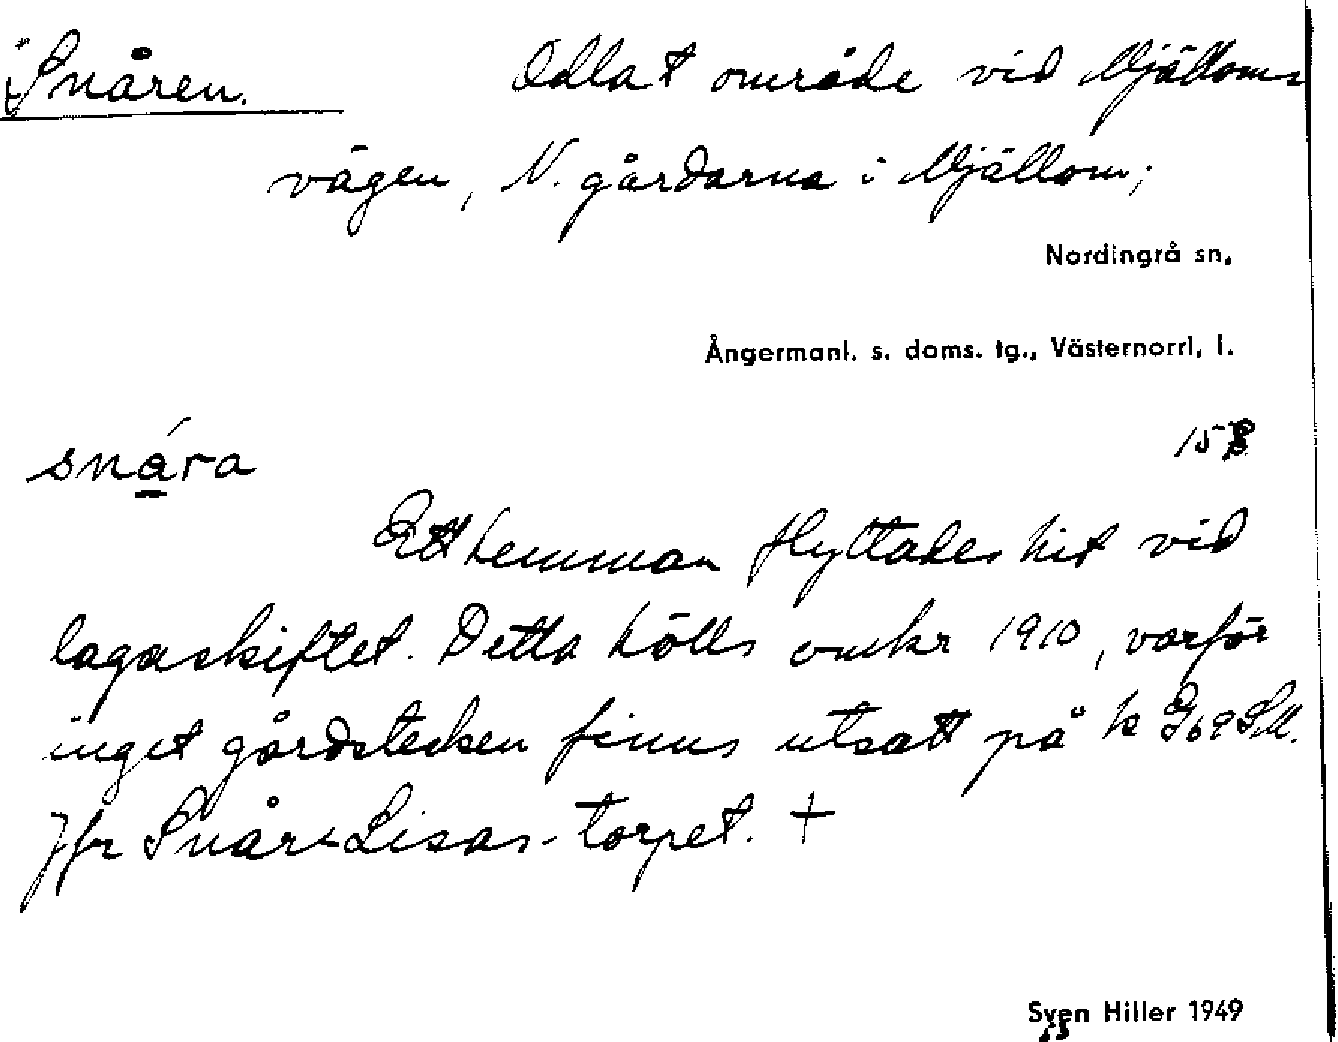 Snåren. Odlat område vid Mjälloms
vägen, N. gårdarna i Mjällom;
Nordingrå sn.
Ångermanl. s. doms. tg., Västernorrl. l.
snára
Ett hemman flyttades hit vid
lagaskiftet. Detta hölls omkr 1910, varför
inget gårdstecken finns utsatt på k
Jfr Snår-Lisas-torpet. +
Sven Hiller 1949